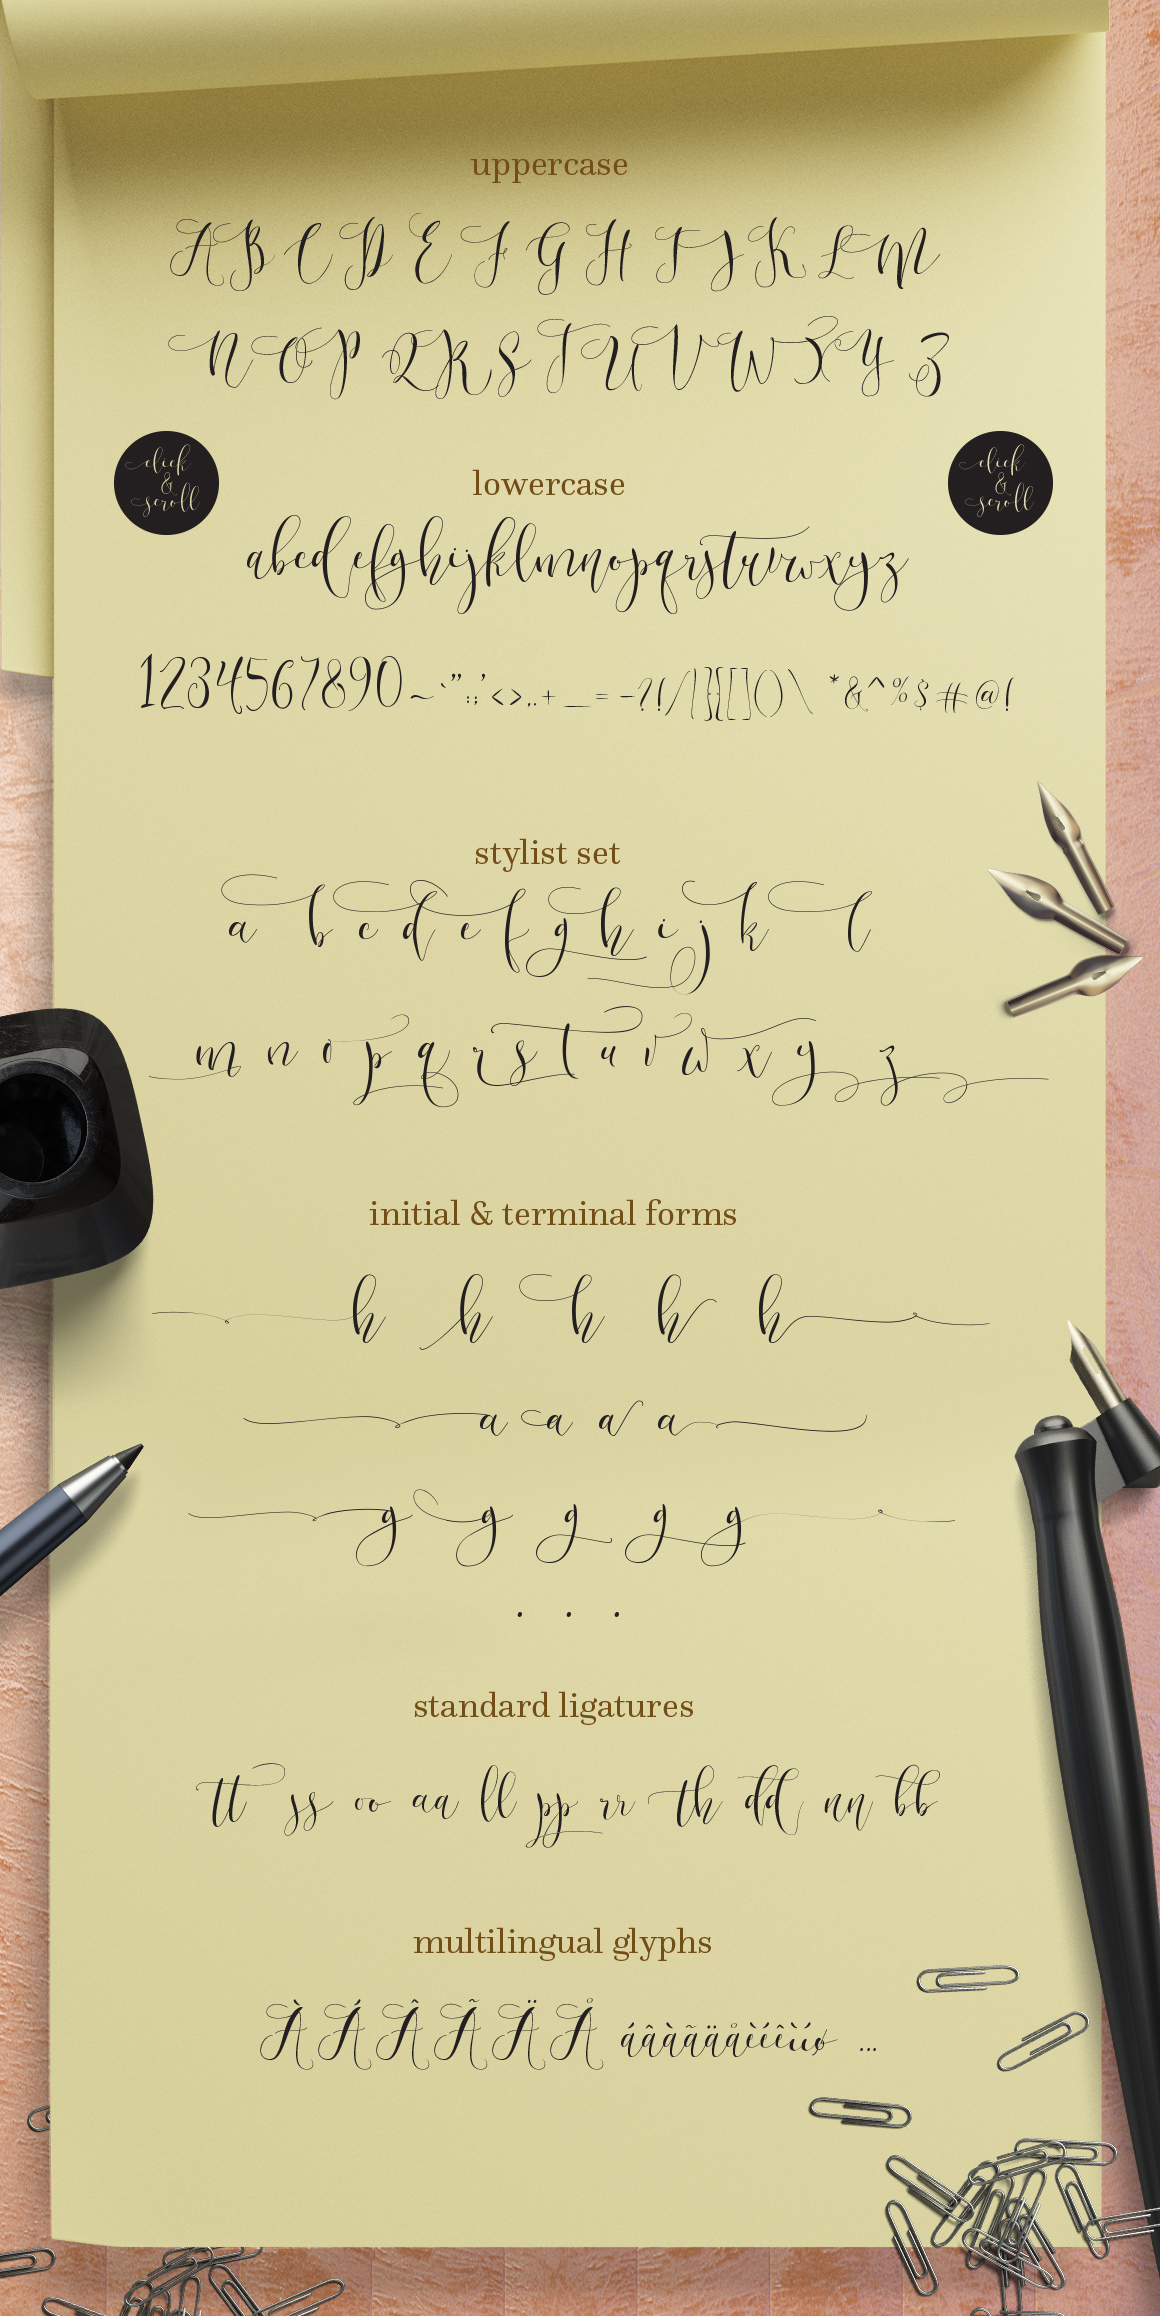 uppercase
A B C D E F G H I J K L M
N O P Q R S T U V W X Y Z
click
&
scroll
click
&
scroll
lowercase
abcdefghijklmnopqrstuvwxyz
1234567890~`”:;’<>,.+_=-?!/|}{[]()\ *&^%$#@!
stylist set
a b c d e f g h i j k l
m n o p q r s t u v w x y z
initial & terminal forms
h h h h h
a a a a
g g g g g
. . .
standard ligatures
tt ss oo aa ll pp rr th dd nn bb
multilingual glyphs
À Á Â Ã Ä Å áâàãäåèéêùúø ...